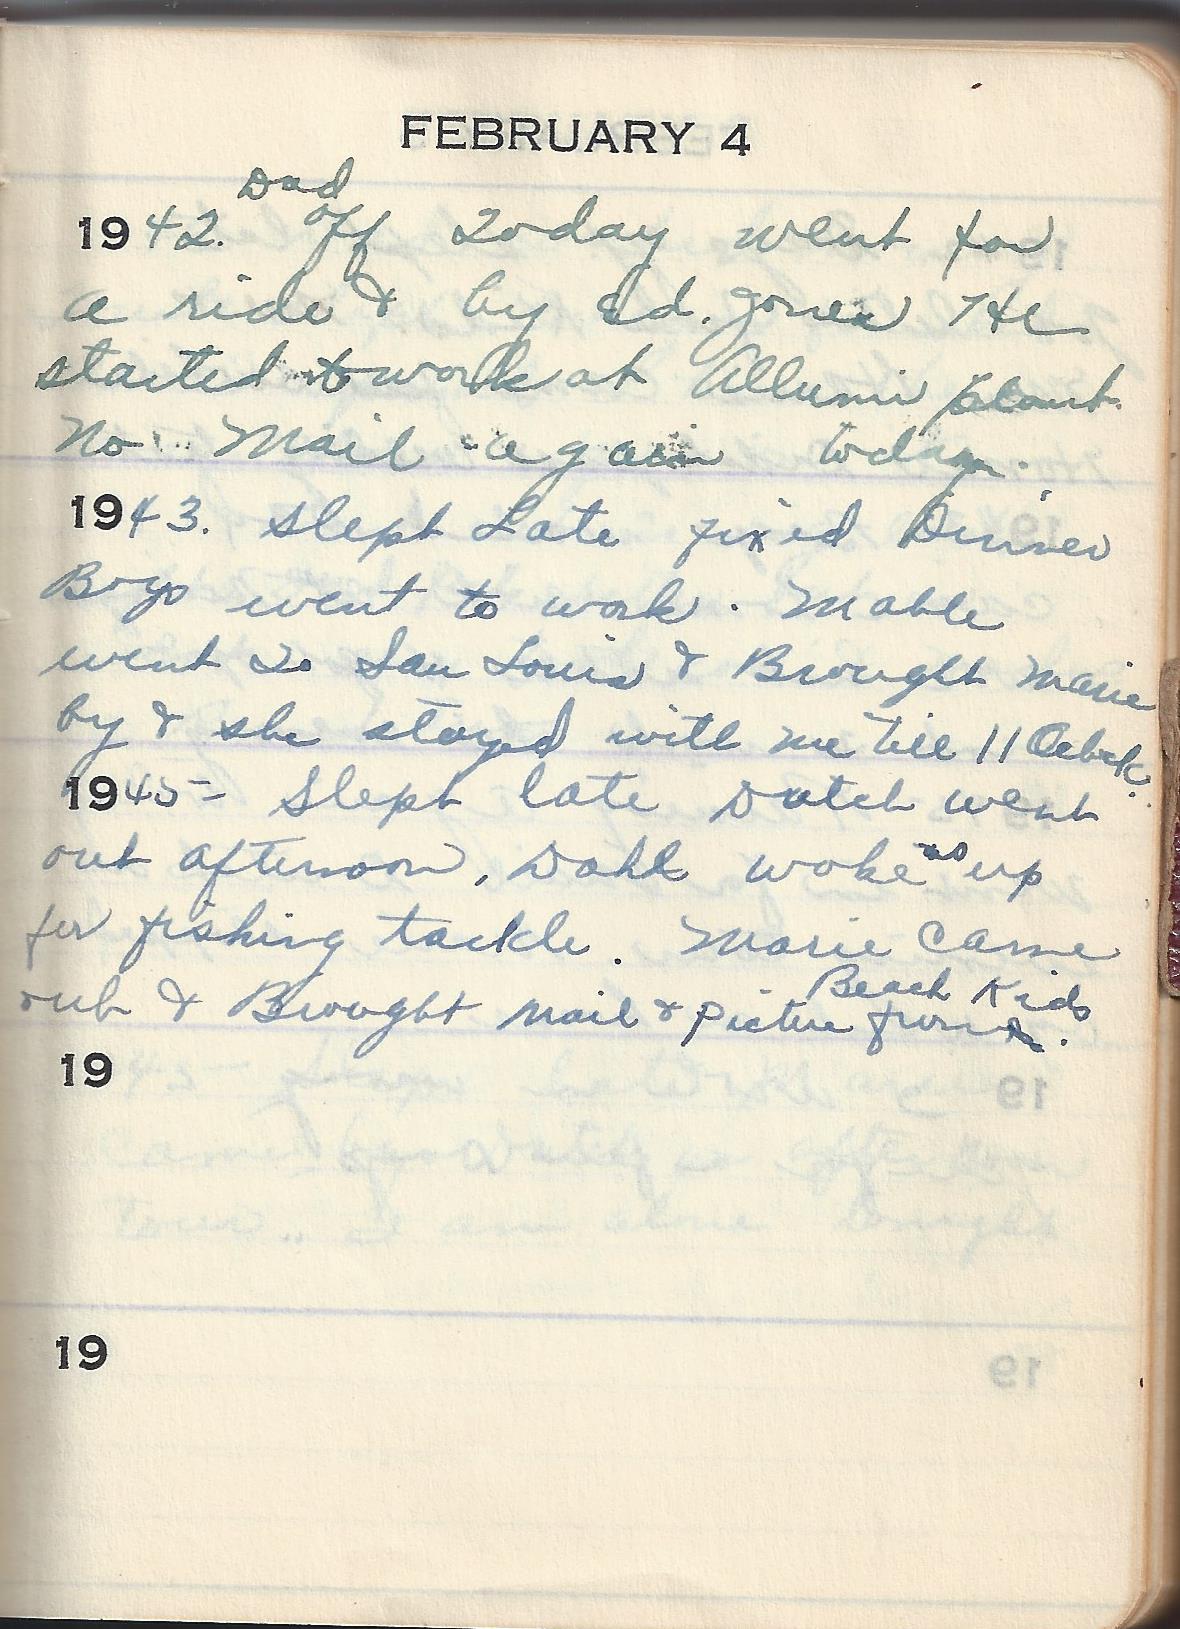 FEBRUARY 4
Dad
1942. Off today went for
a ride & by Ed. Jones He
started to work at Allumi plant.
No Mail again today.
1943. Slept Late fixed Dinner
Boys went to work. Mable
went to San Louis & Brought Marie
by & she stayed with me till 11 Oclock.
1945- Slept late Dutch went
out afternoon, Dahl woke us up
for fishing tackle. Marie came
out & Brought mail & picture from Beach Kids.
19
19